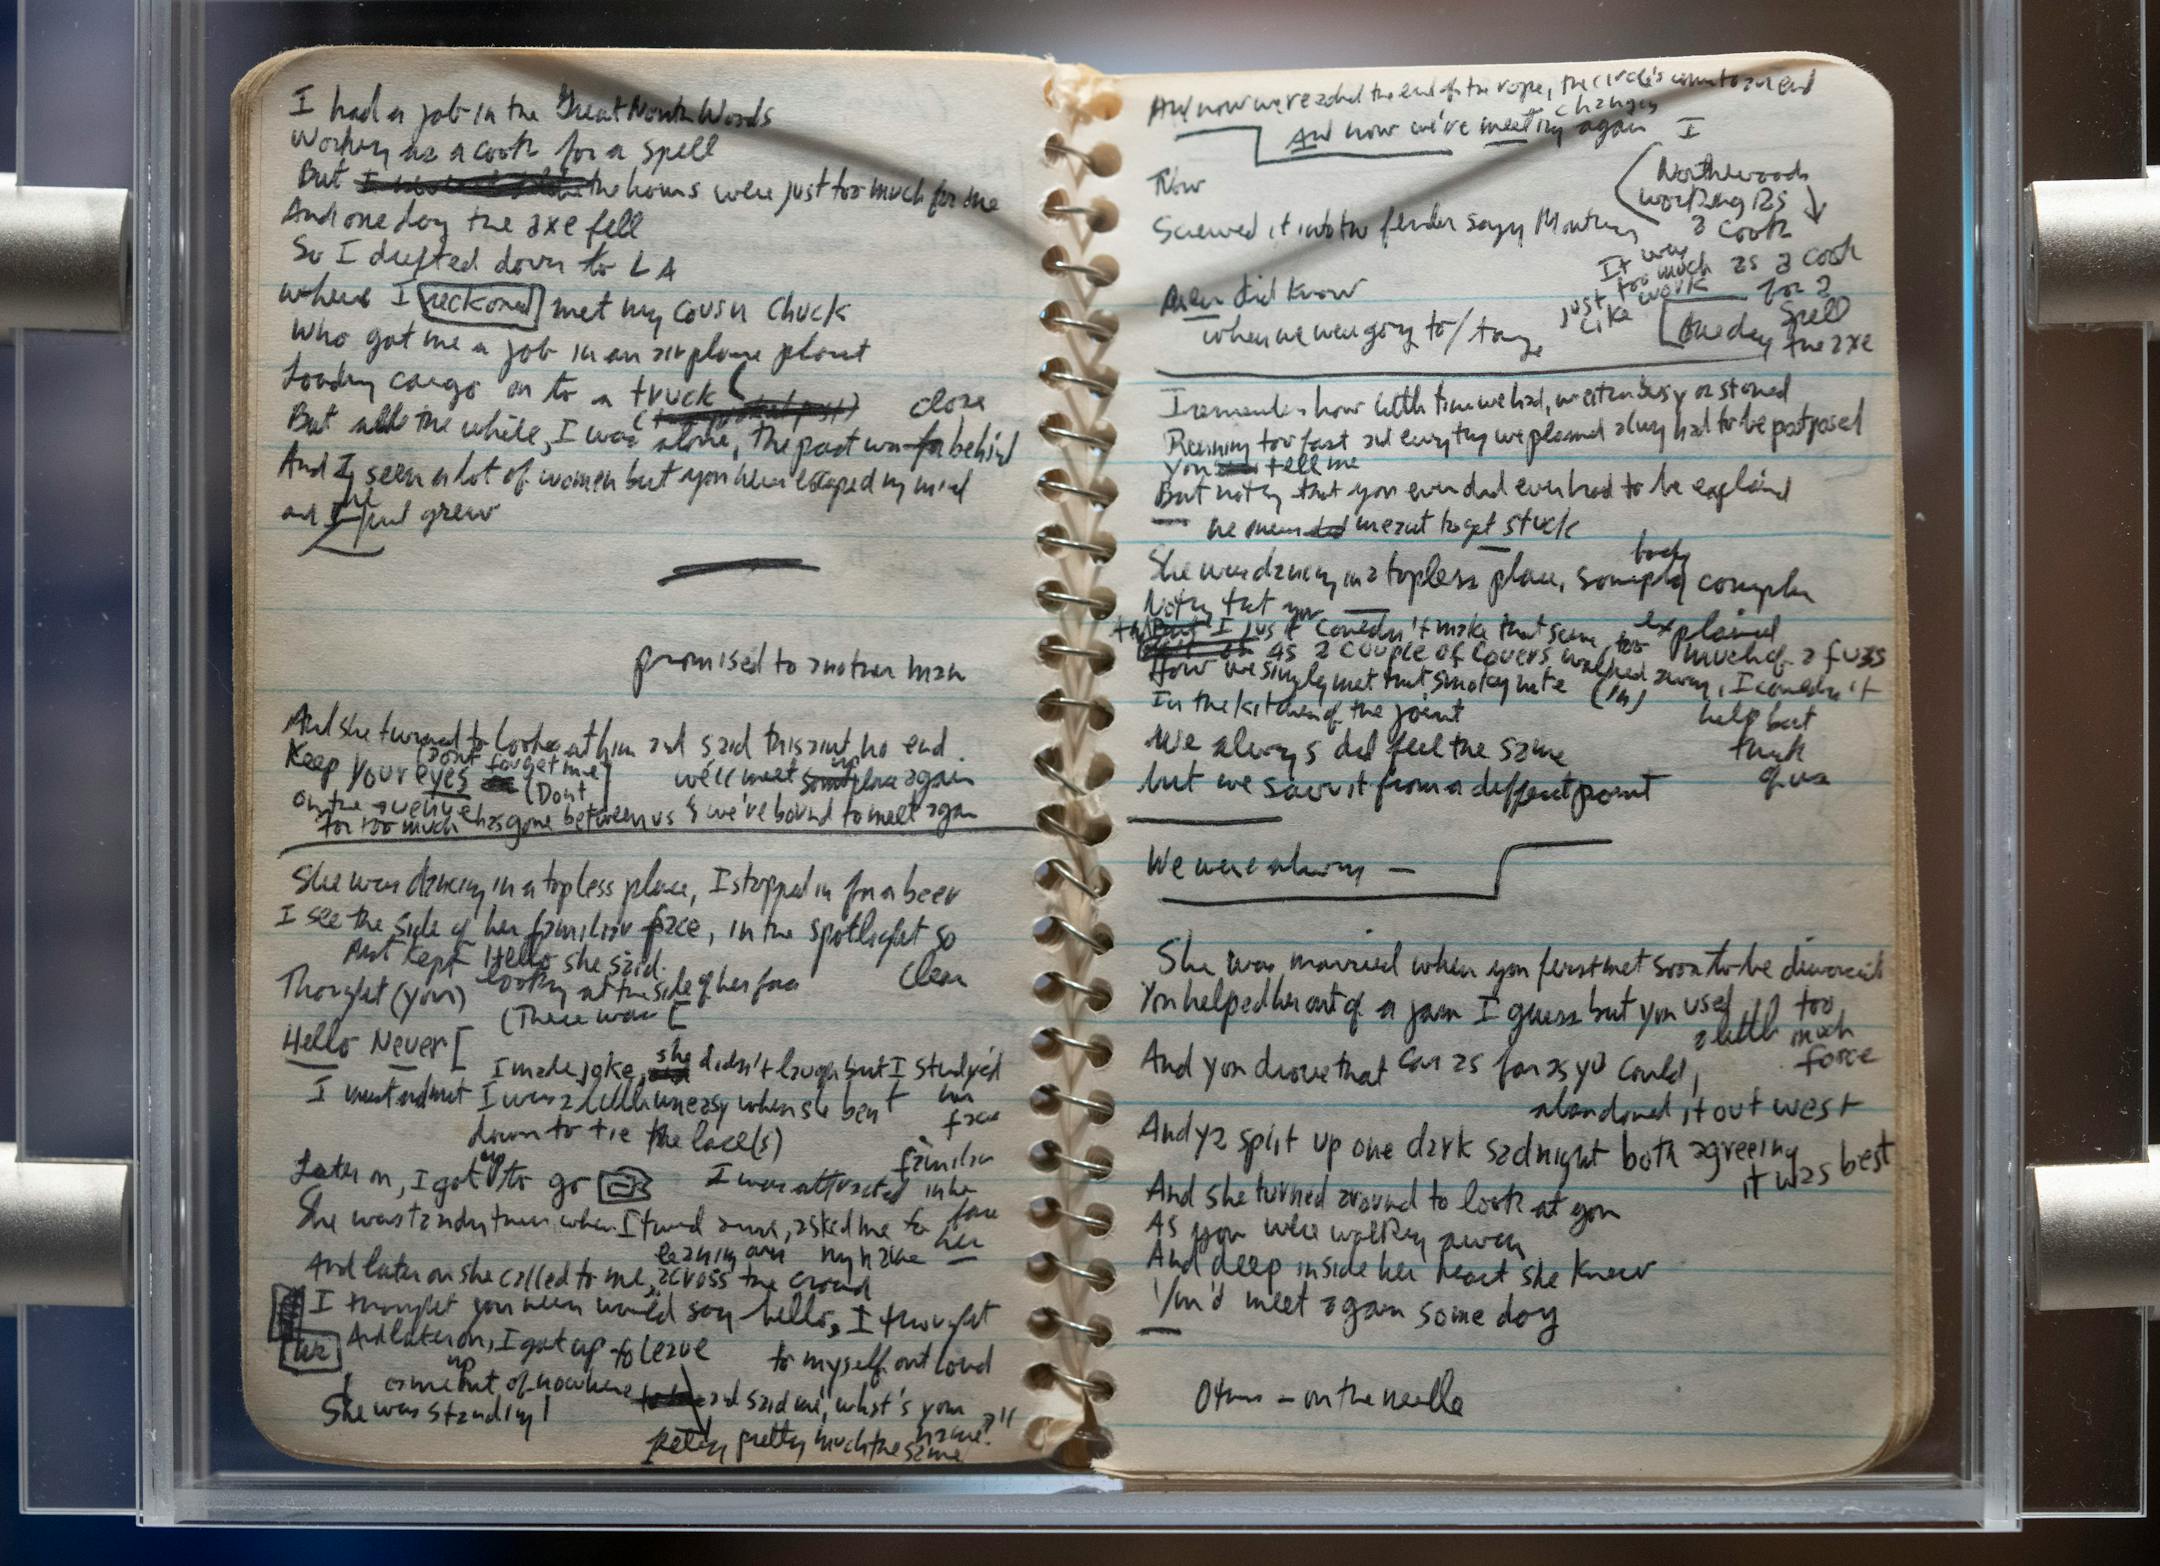 I had a job in the Great North Woods
Working as a cook for a spell
But the hours were just too much for me
And one day the axe fell
So I drifted down to LA
where I reckoned met my cousin Chuck
Who got me a job in an airplane plant
Loading cargo on to a truck
But all the while, I was alone, the past was close behind
And I seen a lot of women but you never escaped my mind
and I just grew
promised to another man
And she turned to look at him and said this aint no end
Keep your eyes (Dont forget me) we'll meet up someplace again
(Dont
on the avenue
for too much has gone between us & we're bound to meet again
She was dancing in a topless place, I stopped in for a beer
I see the side of her familiar face, in the spotlight so
clear
Hello she said
And kept looking at the side of her face
Thought (your)
(There was [
Hello Never [
I made joke, she didn't laugh but I studied
her face
I must admit I was a little uneasy when she bent
down to tie the lace(s)
Later on, I got up to go
I was attracted in her
familiar face
She was standing there when I turned around, asked me to
her
leaning over my name
And later on she called to me, across the crowd
I thought you never would say hello, I thought
to myself out loud
And later on, I got up to leave
came up out of nowhere and said me, what's your
name?"
She was standing
feeling pretty much the same
And now we reached the end of the rope, the circle's come to an end
changes
And now we're meeting again I
Now
Northwoods
working as
a cook
Screwed it into the fender says Montana
It was
just too much
like work
as a cook
for a
spell
One day
the axe
did know
when we were going to/
I remember how little time we had, we either busy or stoned
Running too fast and everything we planned always had to be postponed
You tell me
But nothing that you ever did ever had to be explained
we never meant to get stuck
She was dancing in a topless place,
body
Nothing that you
explained
I just couldn't make that scene, too much of a fuss
As a couple of lovers walked away, I couldn't
help but
think
of us
How we singly met that smoky nite (in)
In the kitchen of the joint
We always did feel the same
but we saw it from a different point
We were always —
She was married when you first met soon to be divorced
You helped her out of a jam I guess but you used
a little too
much
force
And you drove that car as far as you could,
abandoned it out west
And ya split up one dark sad night both agreeing
it was best
And she turned around to look at you
As you were walking away
And deep inside her heart she knew
You'd meet again some day
Others — on the needle